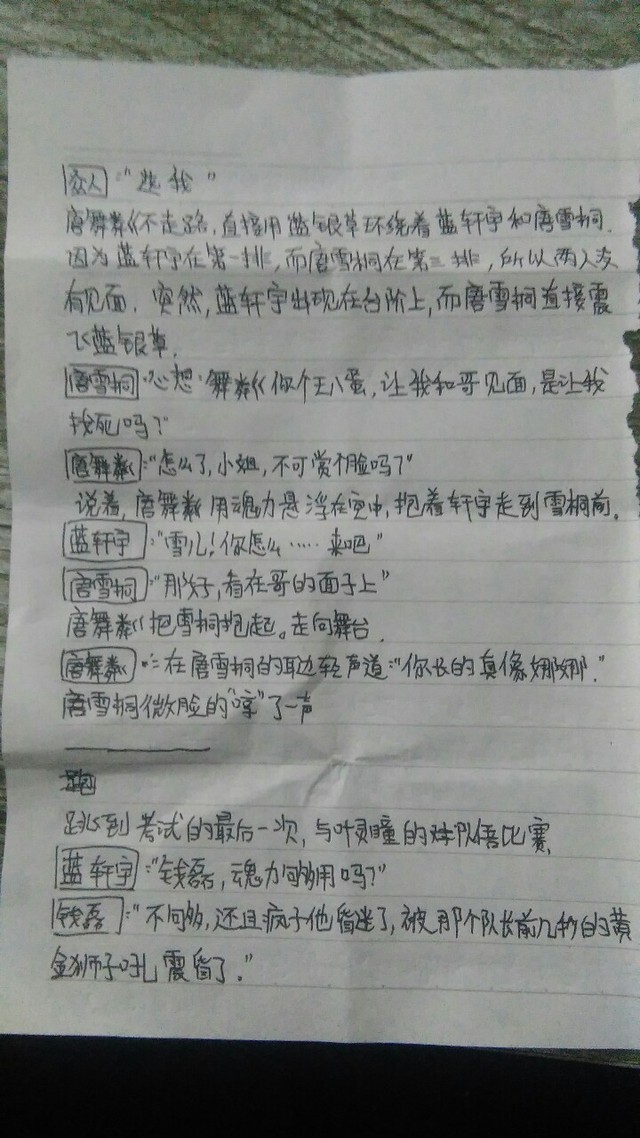 众人："选我"
唐舞麟不走路，直接用蓝银草环绕着蓝轩宇和唐雪桐.
因为蓝轩宇在第一排，而唐雪桐在第三排，所以两人没
有见面. 突然，蓝轩宇出现在台阶上，而唐雪桐直接震
飞蓝银草.
唐雪桐:心想:舞麟你个王八蛋，让我和哥见面，是让我
找死吗？
唐舞麟:"怎么了，小姐，不可赏个脸吗？"
说着，唐舞麟用魂力悬浮在空中，抱着轩宇走到雪桐前。
蓝轩宇:"雪儿！你怎么……来吧"
唐雪桐:"那好，看在哥的面子上"
唐舞麟把雪桐抱起。走向舞台.
唐舞麟:在唐雪桐的耳边轻声道:"你长的真像娜娜."
唐雪桐微脸的"哼"了一声
跳到考试的最后一次，与叶灵瞳的球队伍比赛
蓝轩宇:"钱磊，魂力够用吗？"
钱磊:"不够，还且疯子他昏迷了，被那个队长前几秒的黄
金狮子吼震昏了."